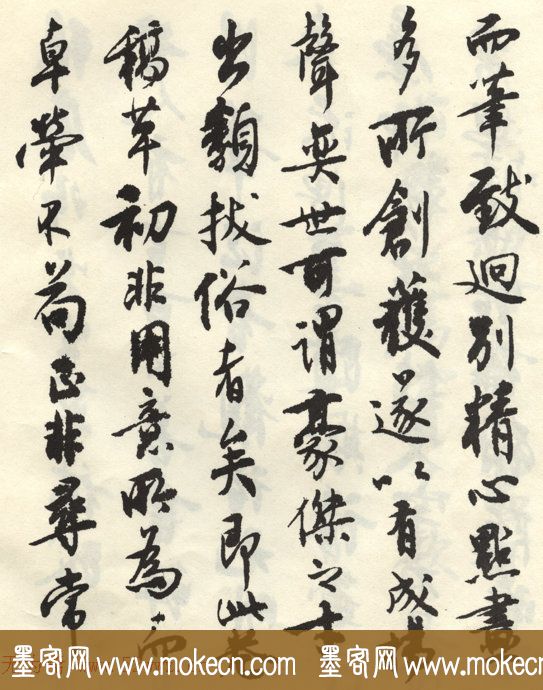 而筆致迥別精心點畫
多所創獲遂以有成馳
聲奕世可謂豪傑之士
出類拔俗者矣即此卷
稿草初非用意所為而
卓犖不苟正非尋常
墨客网 www.mokecn.com 墨客网 www.mokecn.com